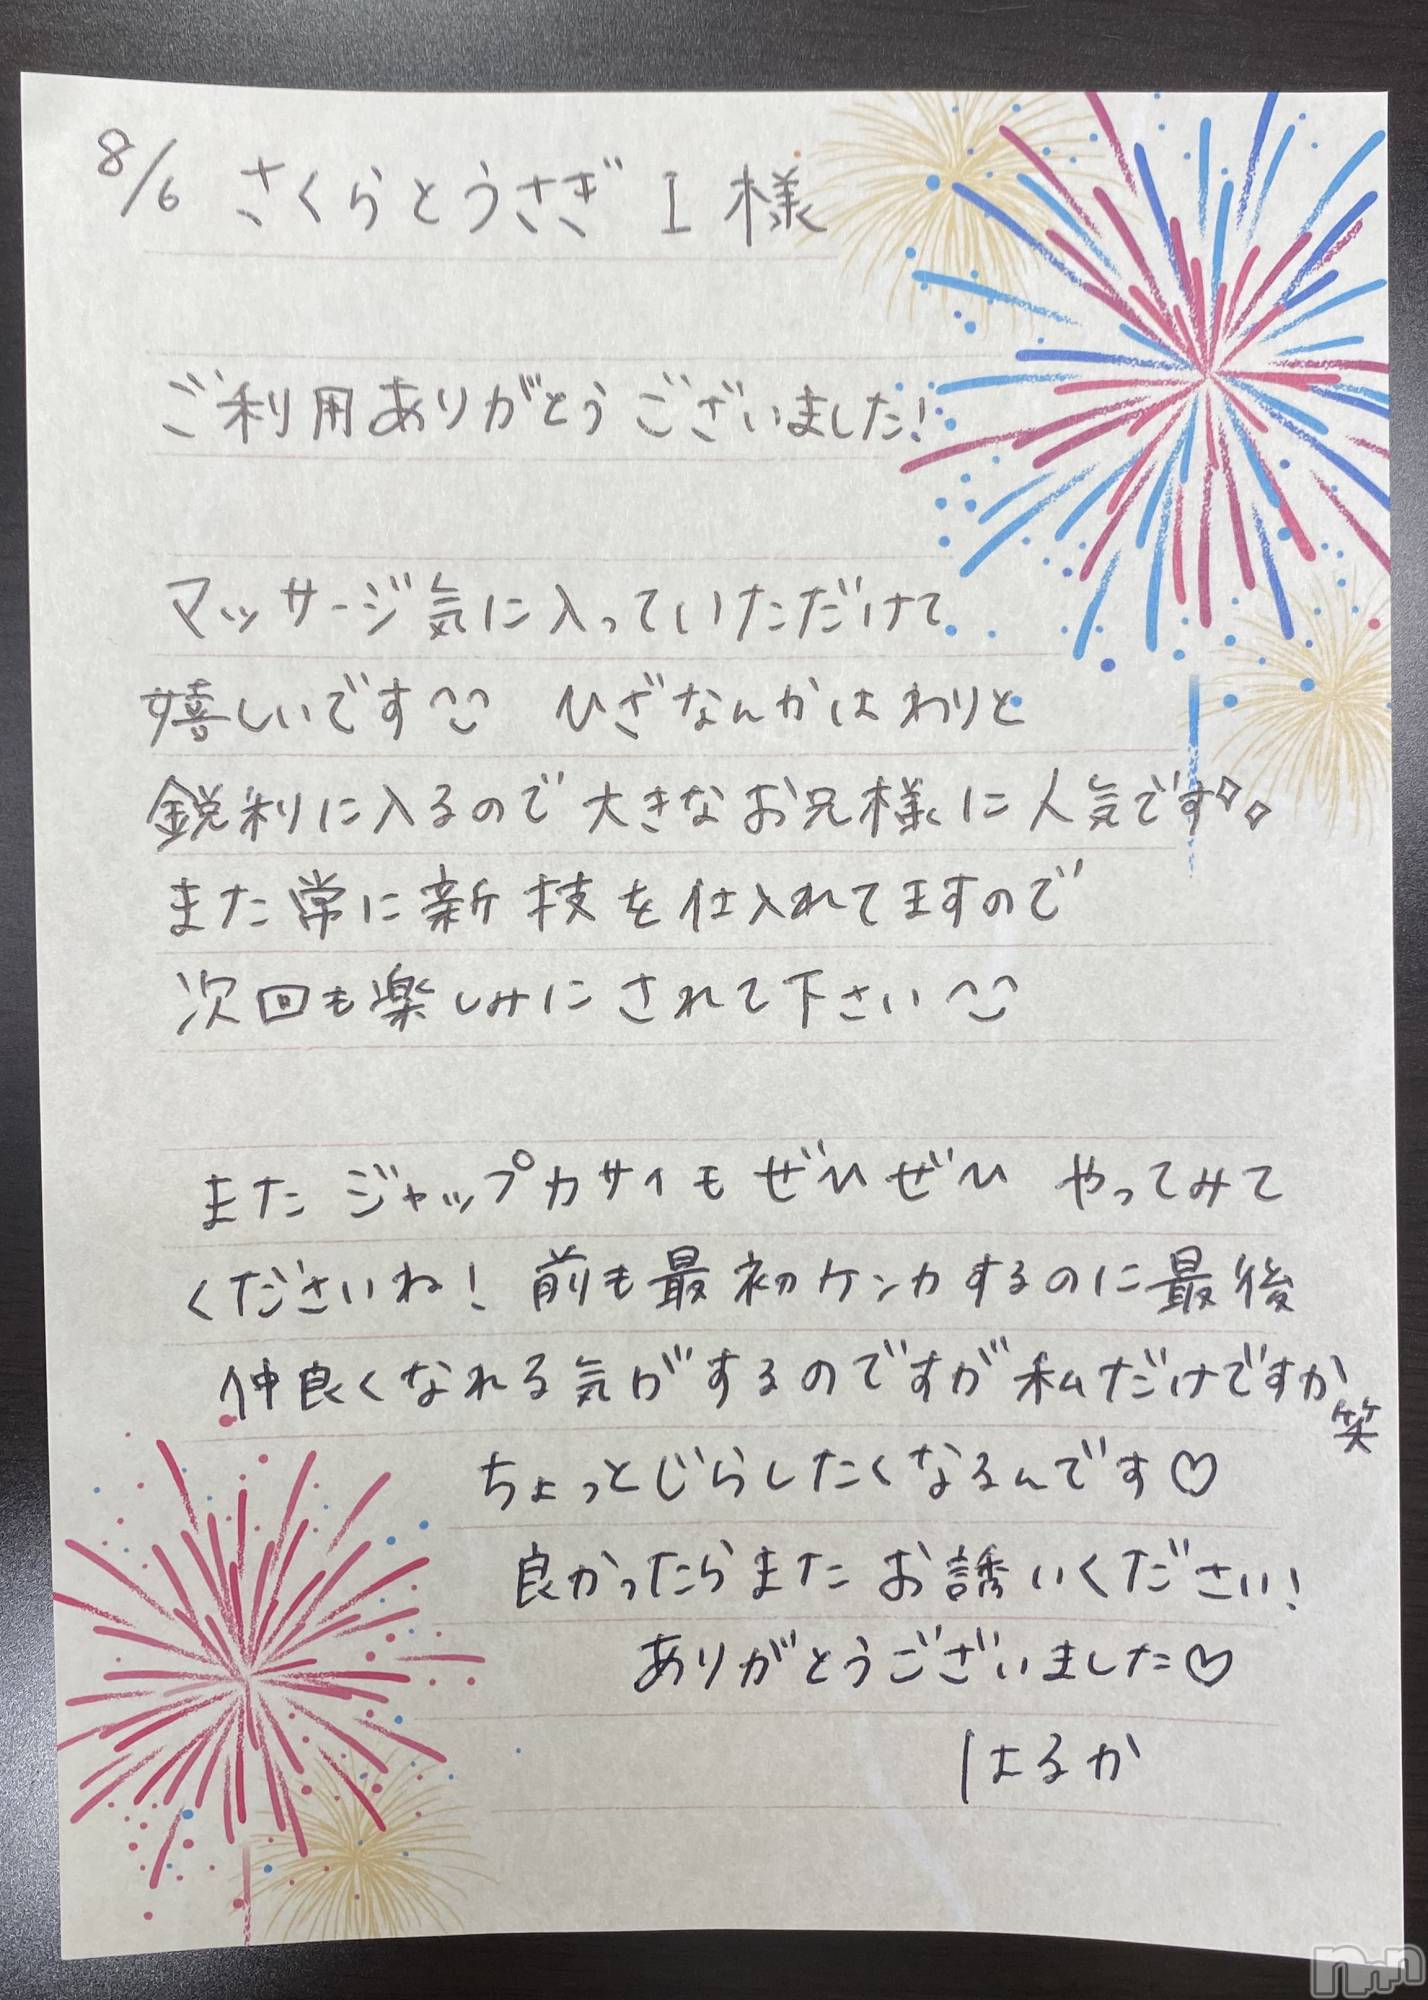 8/6 さくらとうさぎ I 様
ご利用ありがとうございました!
マッサージ気に入っていただけて
嬉しいです ひざなんかはわりと
鋭利に入るので大きなお兄様に人気です
また常に新技を仕入れてますので
次回も楽しみにされて下さい
また ジャップカサイもぜひぜひ やってみて
くださいね! 前も最初ケンカするのに最後
仲良くなれる気がするのですが私だけですか
笑
ちょっとじらしたくなるんです♡
良かったらまた お誘いください!
ありがとうございました♡
はるか